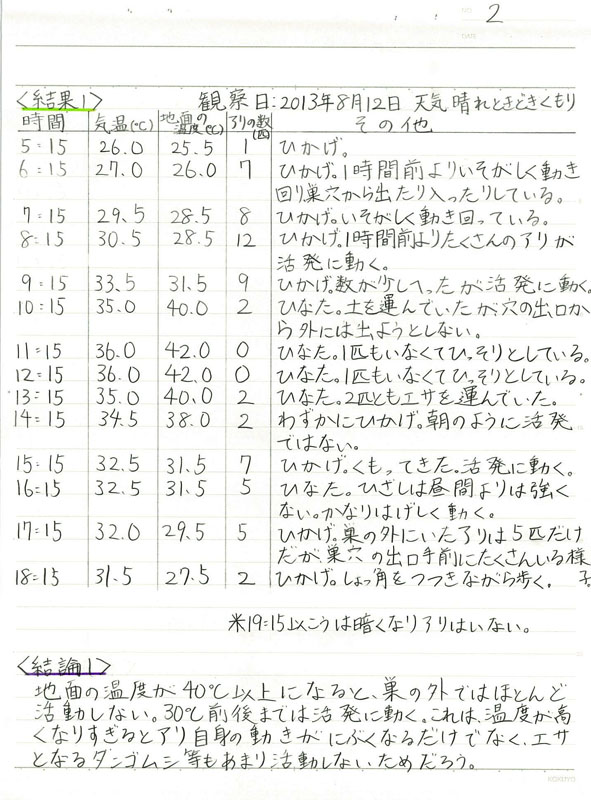 2
〈結果1〉 観察日:2013年8月12日 天気 晴れときどきくもり
時間 気温(℃) 地面の温度(℃) アリの数(匹) その他
5:15 26.0 25.5 1 ひかげ。
6:15 27.0 26.0 7 ひかげ。1時間前よりいそがしく動き
回り巣穴から出たり入ったりしている。
7:15 29.5 28.5 8 ひかげ。いそがしく動き回っている。
8:15 30.5 28.5 12 ひかげ。1時間前よりたくさんのアリが
活発に動く。
9:15 33.5 31.5 9 ひかげ。数が少しへったが活発に動く。
10:15 35.0 40.0 2 ひなた。土を運んでいたが穴の出口か
ら外には出ようとしない。
11:15 36.0 42.0 0 ひなた。1匹もいなくてひっそりとしている。
12:15 36.0 42.0 0 ひなた。1匹もいなくてひっそりとしている。
13:15 35.0 40.0 2 ひなた。2匹ともエサを運んでいた。
14:15 34.5 38.0 2 わずかにひかげ。朝のように活発
ではない。
15:15 32.5 31.5 7 ひかげ。くもってきた。活発に動く。
16:15 32.5 31.5 5 ひなた。ひざしは昼間よりは強く
ない。かなりはげしく動く。
17:15 32.0 29.5 5 ひかげ。巣の外にいたアリは5匹だけ
だが、巣穴の出口手前にたくさんいる様子。
18:15 31.5 27.5 2 ひかげ。しょっ角をつつきながら歩く。
※19:15以こうは暗くなりアリはいない。
〈結論1〉
地面の温度が40℃以上になると、巣の外ではほとんど
活動しない。30℃前後までは活発に動く。これは、温度が高
くなりすぎるとアリ自身の動きがにぶくなるだけでなく、エサ
となるダンゴムシ等もあまり活動しないためだろう。